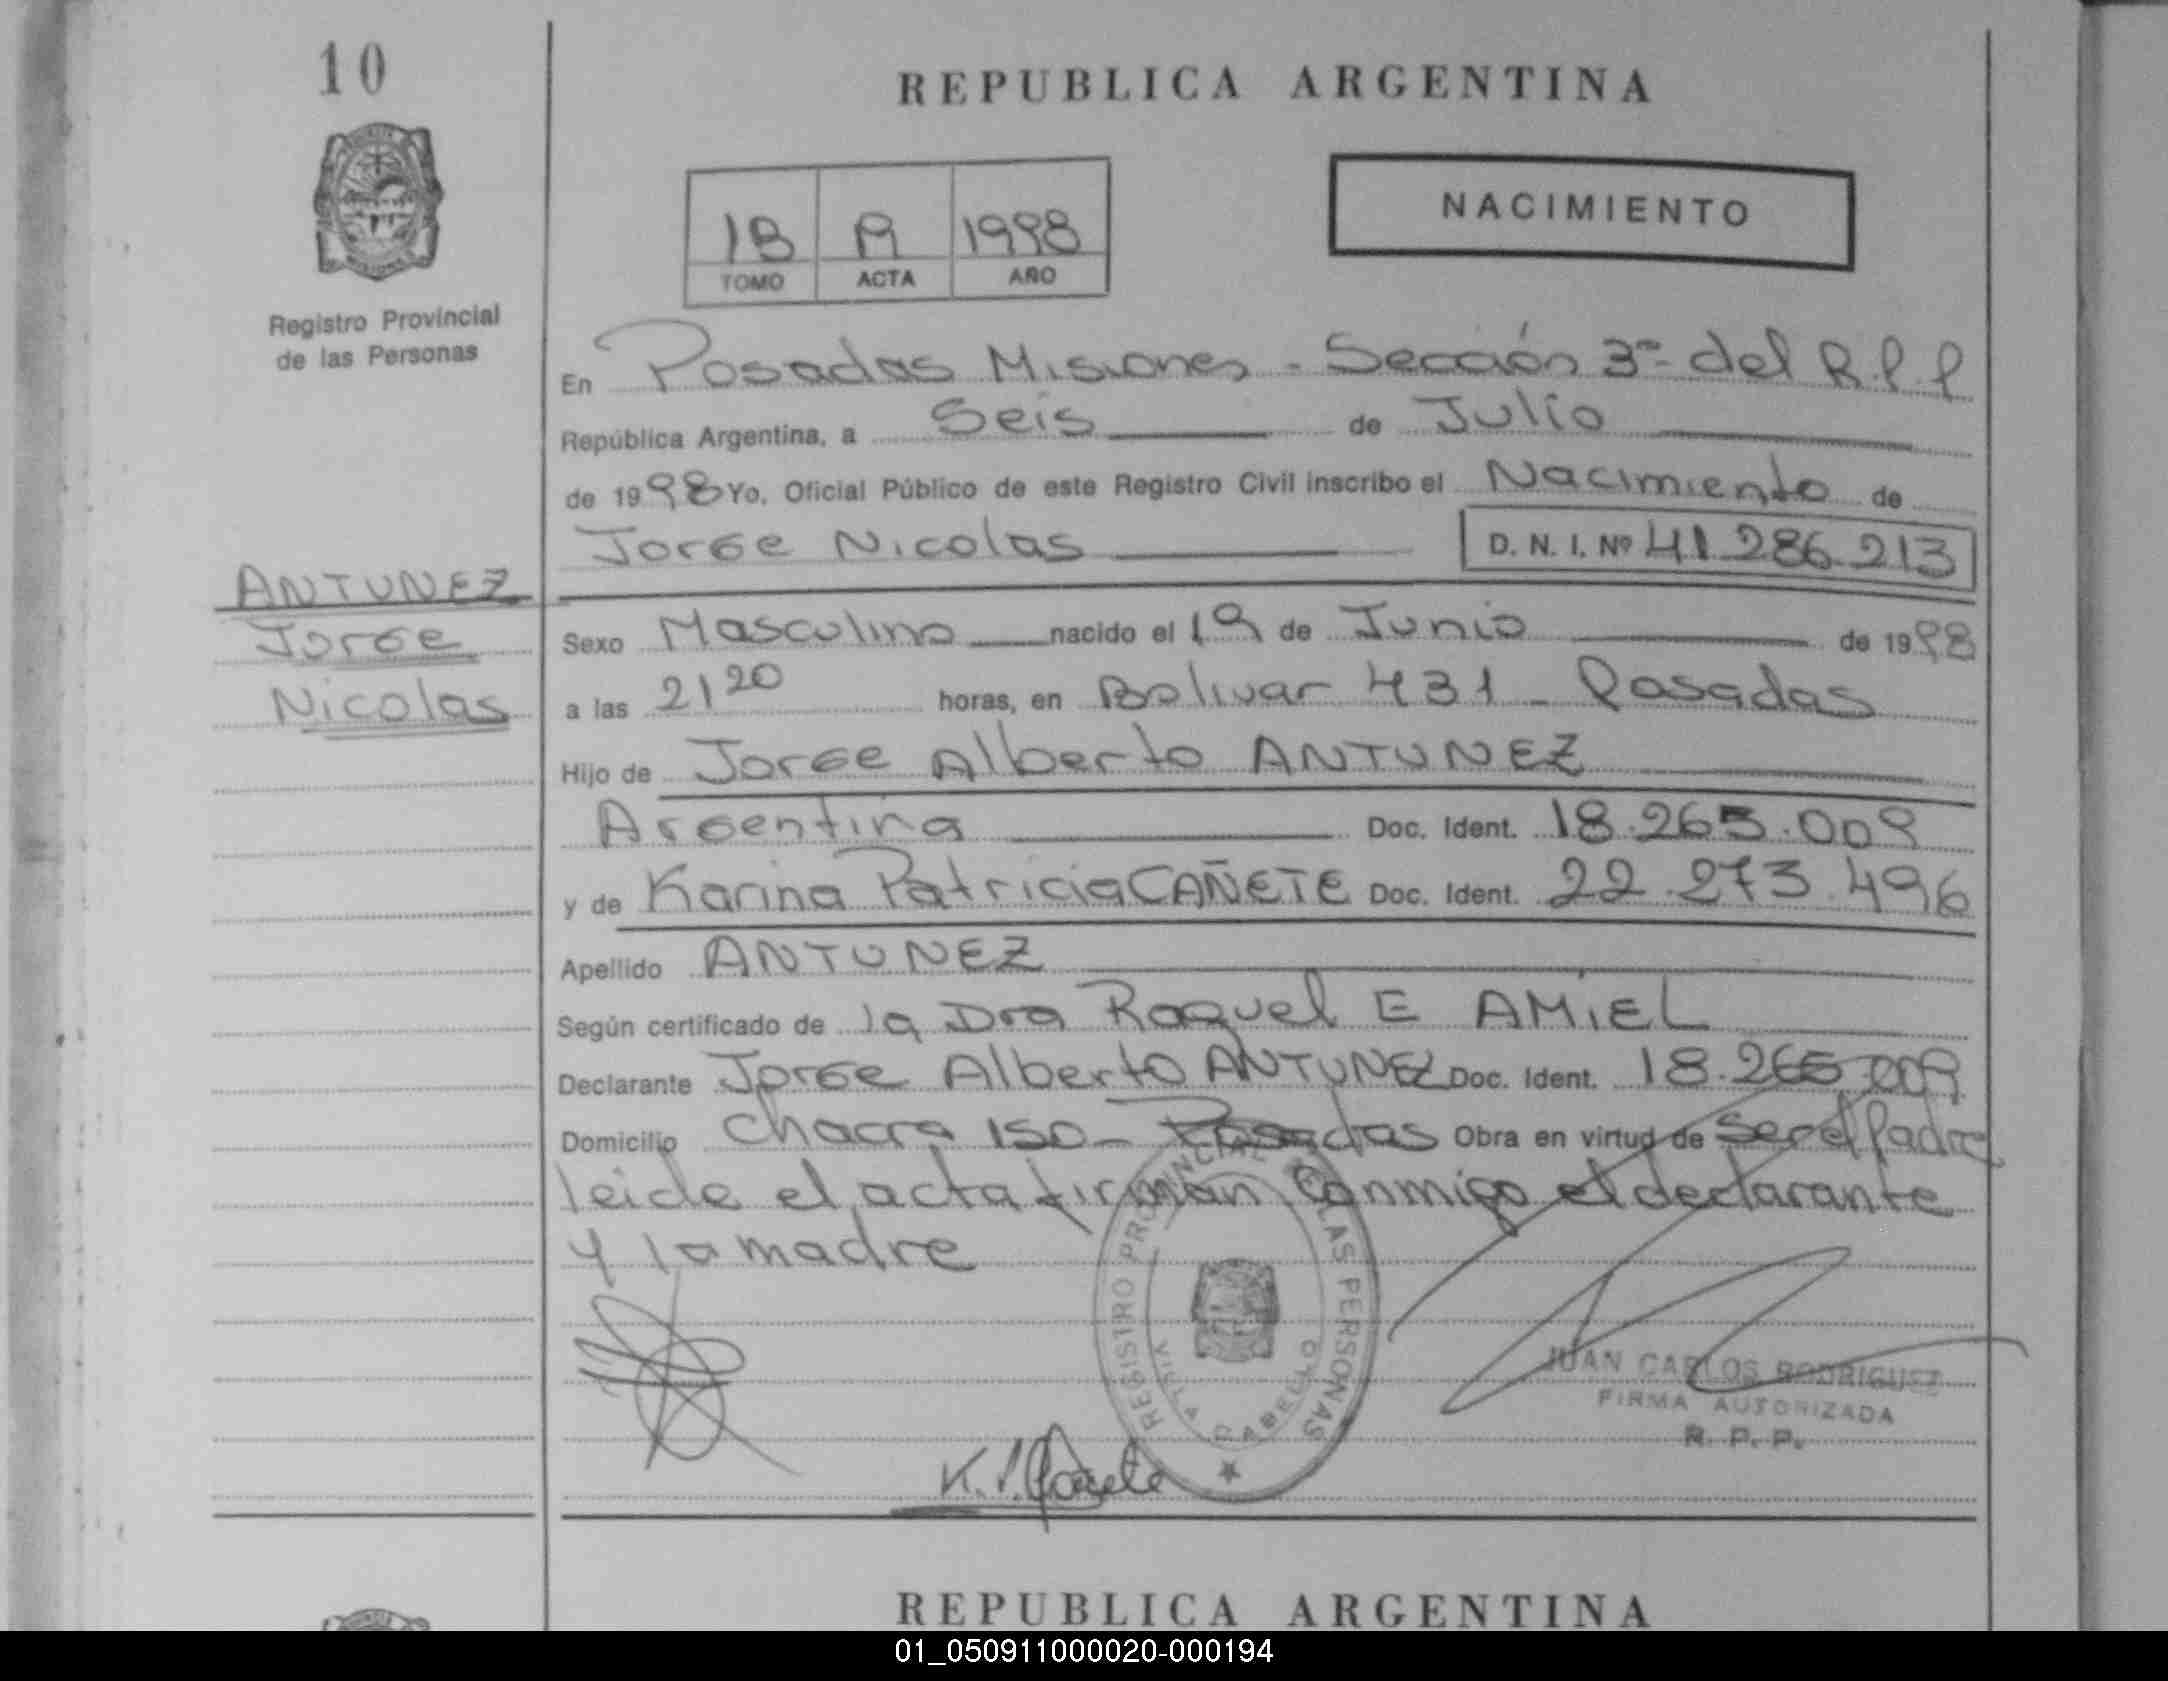 10
REPUBLICA ARGENTINA
NACIMIENTO
1B 1998
TOMO ACTA AÑO
Registro Provincial
de las Personas
En Posadas Misiones - Sección 3ª del R.P.P
República Argentina, a Seis de Julio
de 1998 Yo, Oficial Público de este Registro Civil inscribo el Nacimiento de
Jorge Nicolas D. N. I. Nº 41.286.213
ANTUNEZ
Jorge
Nicolas
Sexo Masculino nacido el 19 de Junio de 1998
a las 21 20 horas, en Bolivar 431 - Posadas
Hijo de Jorge Alberto ANTUNEZ
Argentina Doc. Ident. 18.265.009
y de Karina Patricia CAÑETE Doc. Ident. 22.273.496
Apellido ANTUNEZ
Según certificado de la Dra Raquel E AMiEL
Declarante Jorge Alberto ANTUNEZ Doc. Ident. 18.265.009
Domicilio Chacra 150 - Posadas Obra en virtud de Ser el Padre
leida el acta firman Conmigo el declarante
y la madre
REGISTRO PROVINCIAL DE LAS PERSONAS
VILLA CABELLO
JUAN CARLOS RODRIGUEZ
FIRMA AUTORIZADA
R. P. P.
K. P. Cañete
REPUBLICA ARGENTINA
01_050911000020-000194